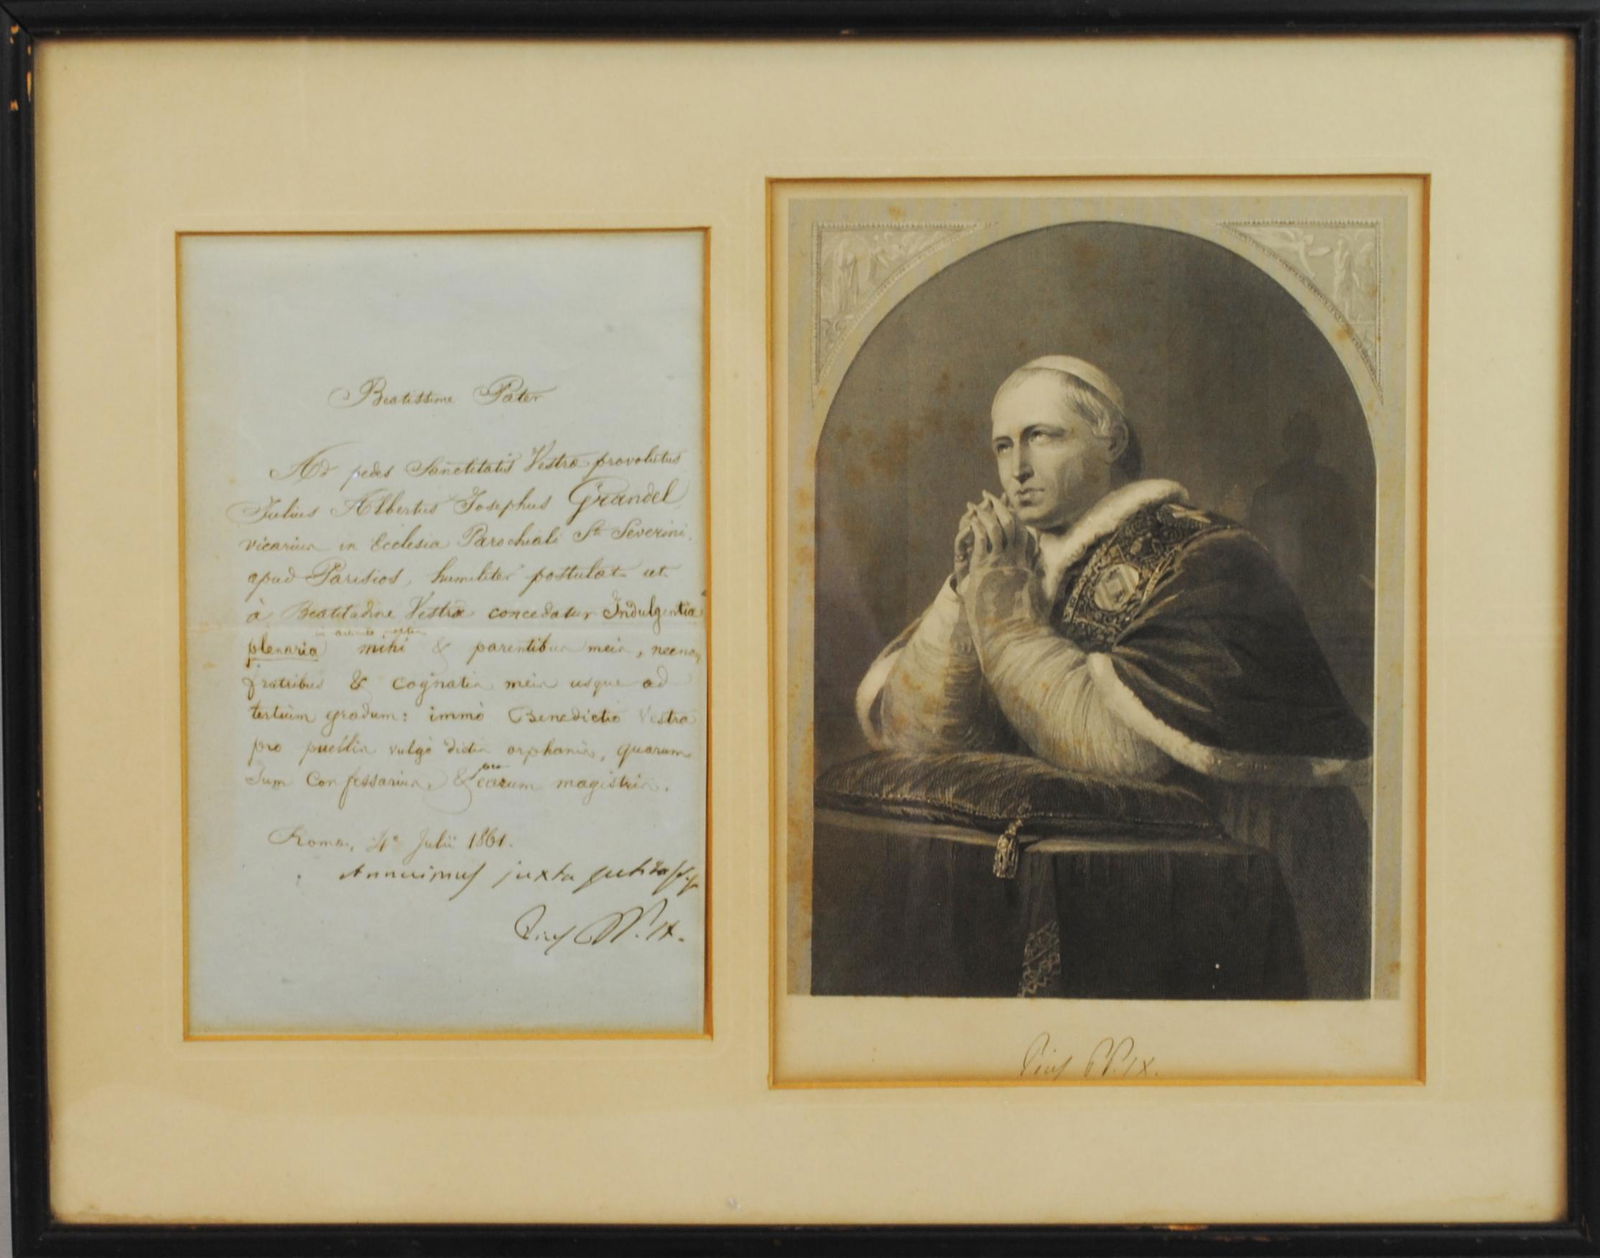 Beatissime Pater
Ad pedes Sanctitatis Vestræ provolutus
Julius Albertus Josephus Grandel,
vicarius in Ecclesia Parochiali Sti Severini,
apud Parisios, humiliter postulat ut
à Beatitudine Vestra concedatur Indulgentia
in articulo
plenaria mihi & parentibus meis, necnon
fratribus & cognatis meis usque ad
tertium gradum: immò Benedictio Vestra
pro puellis vulgò dictis orphanis, quarum
sum Confessarius, & pro earum magistris.
Romæ, 4a Julii 1861.
Annuimus juxta petita
Pius PP. IX.
Pius PP. IX.